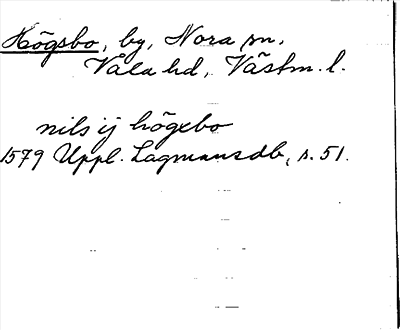 Högsbo, by, Nora sn.
Våla hd, Västm. l.
nils ij högxbo
1579 Uppl. Lagmansdb, s. 51.